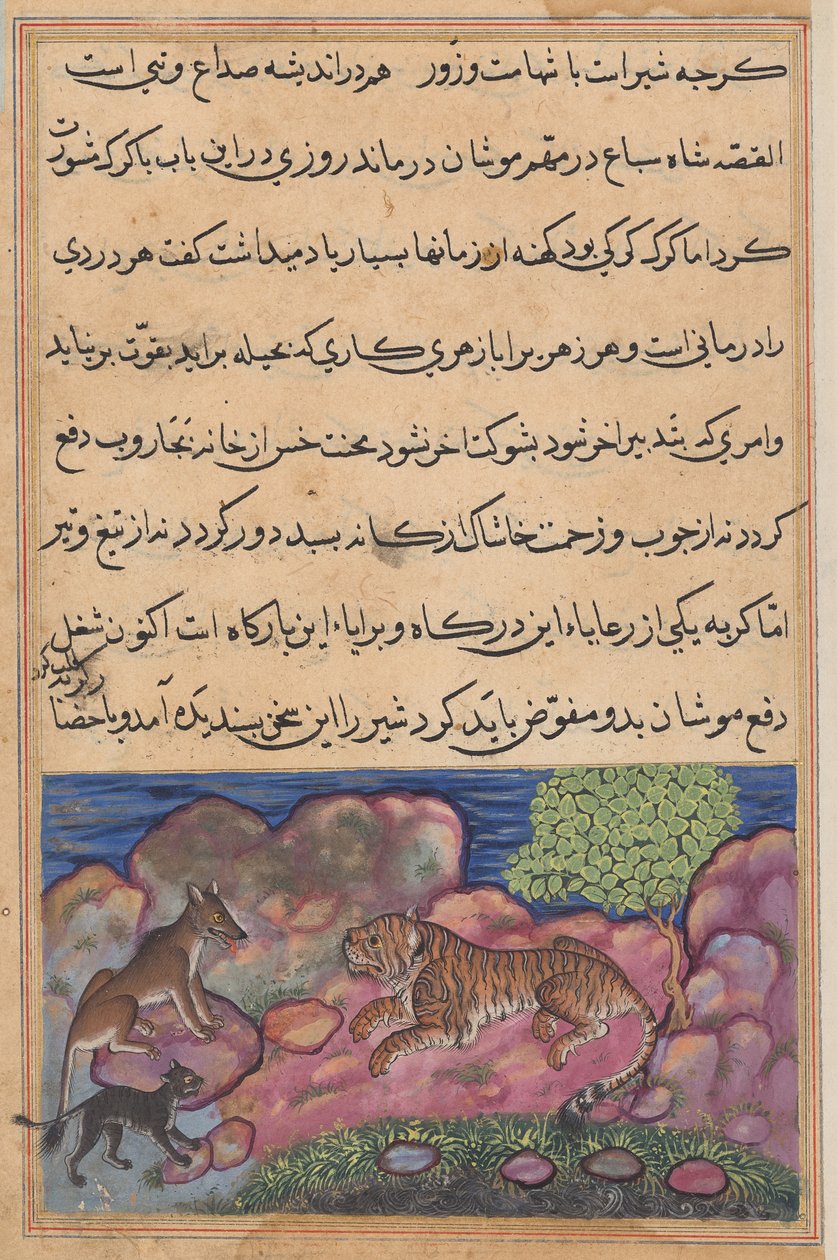 کرجه شیر است با شهامت و زور هم در اندیشه صداع و تبی است
القصّه شاه سباع در مهّم موشان درماند روزی در این باب با کرک مشورت
کرد اما کرک کرکی بود کهنه از زمانها بسیار یاد میداشت کفت هر دردی
را درمانی است و هر زهر برا بازهری کاری که بحیله براید بقوّت برنیاید
و امری که بتدبیر اخر شود بشوکت اخر نشود محنت خس از خانه بجاروب دفع
کردد نه از جوب و زحمت خاشاک از کانه بسبد دور کردد نه از تیغ و تیر
امّا کربه یکی از رعایاء این درکاه و برایاء این بارکاه است اکنون شغل
دفع موشان بدو مفوّض باید کرد شیر را این سخن بسندیده آمد و باحضار
کربه
طلب کرد